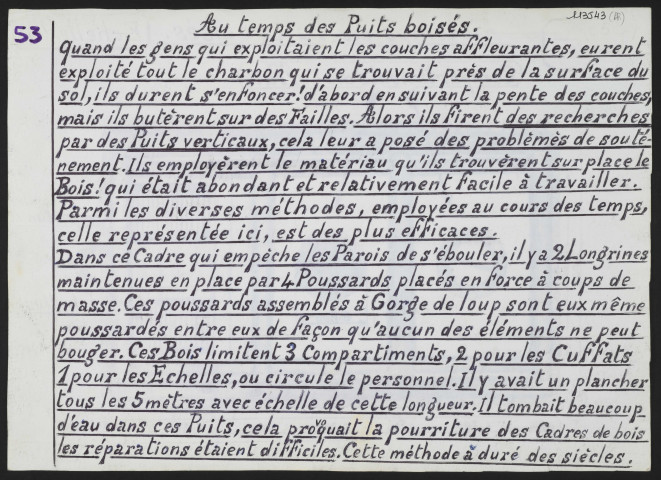 113543 (18)
53
Au temps des Puits boisés.
Quand les gens qui exploitaient les couches affleurantes, eurent
exploité tout le charbon qui se trouvait près de la surface du
sol, ils durent s'enfoncer! d'abord en suivant la pente des couches,
mais ils butèrent sur des Failles. Alors ils firent des recherches
par des Puits verticaux, cela leur a posé des problèmès de souté-
nement. Ils employèrent le matériau qu'ils trouvèrent sur place le
Bois! qui était abondant et relativement facile à travailler.
Parmi les diverses méthodes, employées au cours des temps,
celle représentée ici, est des plus efficaces.
Dans ce Cadre qui empèche les Parois de s'ébouler, il y a 2 Longrines
maintenues en place par 4 Poussards placés en force à coups de
masse. Ces poussards assemblés à Gorge de loup sont eux même
poussardés entre eux de façon qu'aucun des éléments ne peut
bouger. Ces Bois limitent 3 Compartiments, 2 pour les Cuffats
1 pour les Echelles, ou circule le personnel. Il y avait un plancher
tous les 5 mètres avec échelle de cette longueur. Il tombait beaucoup
d'éau dans ces Puits, cela provoquait la pourriture des Cadres de bois
les réparations étaient difficiles. Cette méthode à duré des siècles.